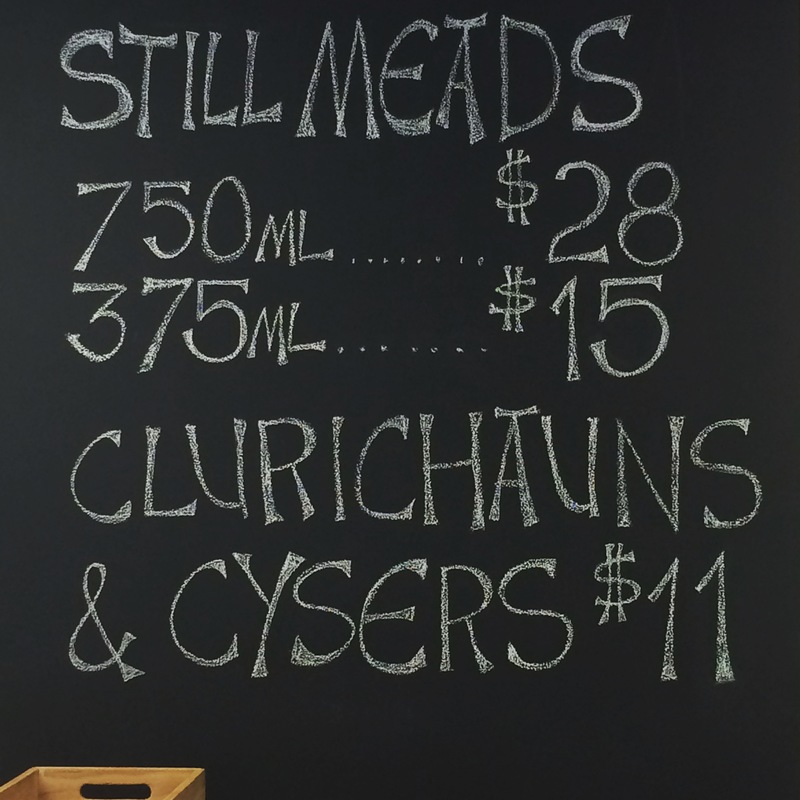 STILL MEADS
750ML .......... $28
375ML .......... $15
CLURICHAUNS
& CYSERS $11